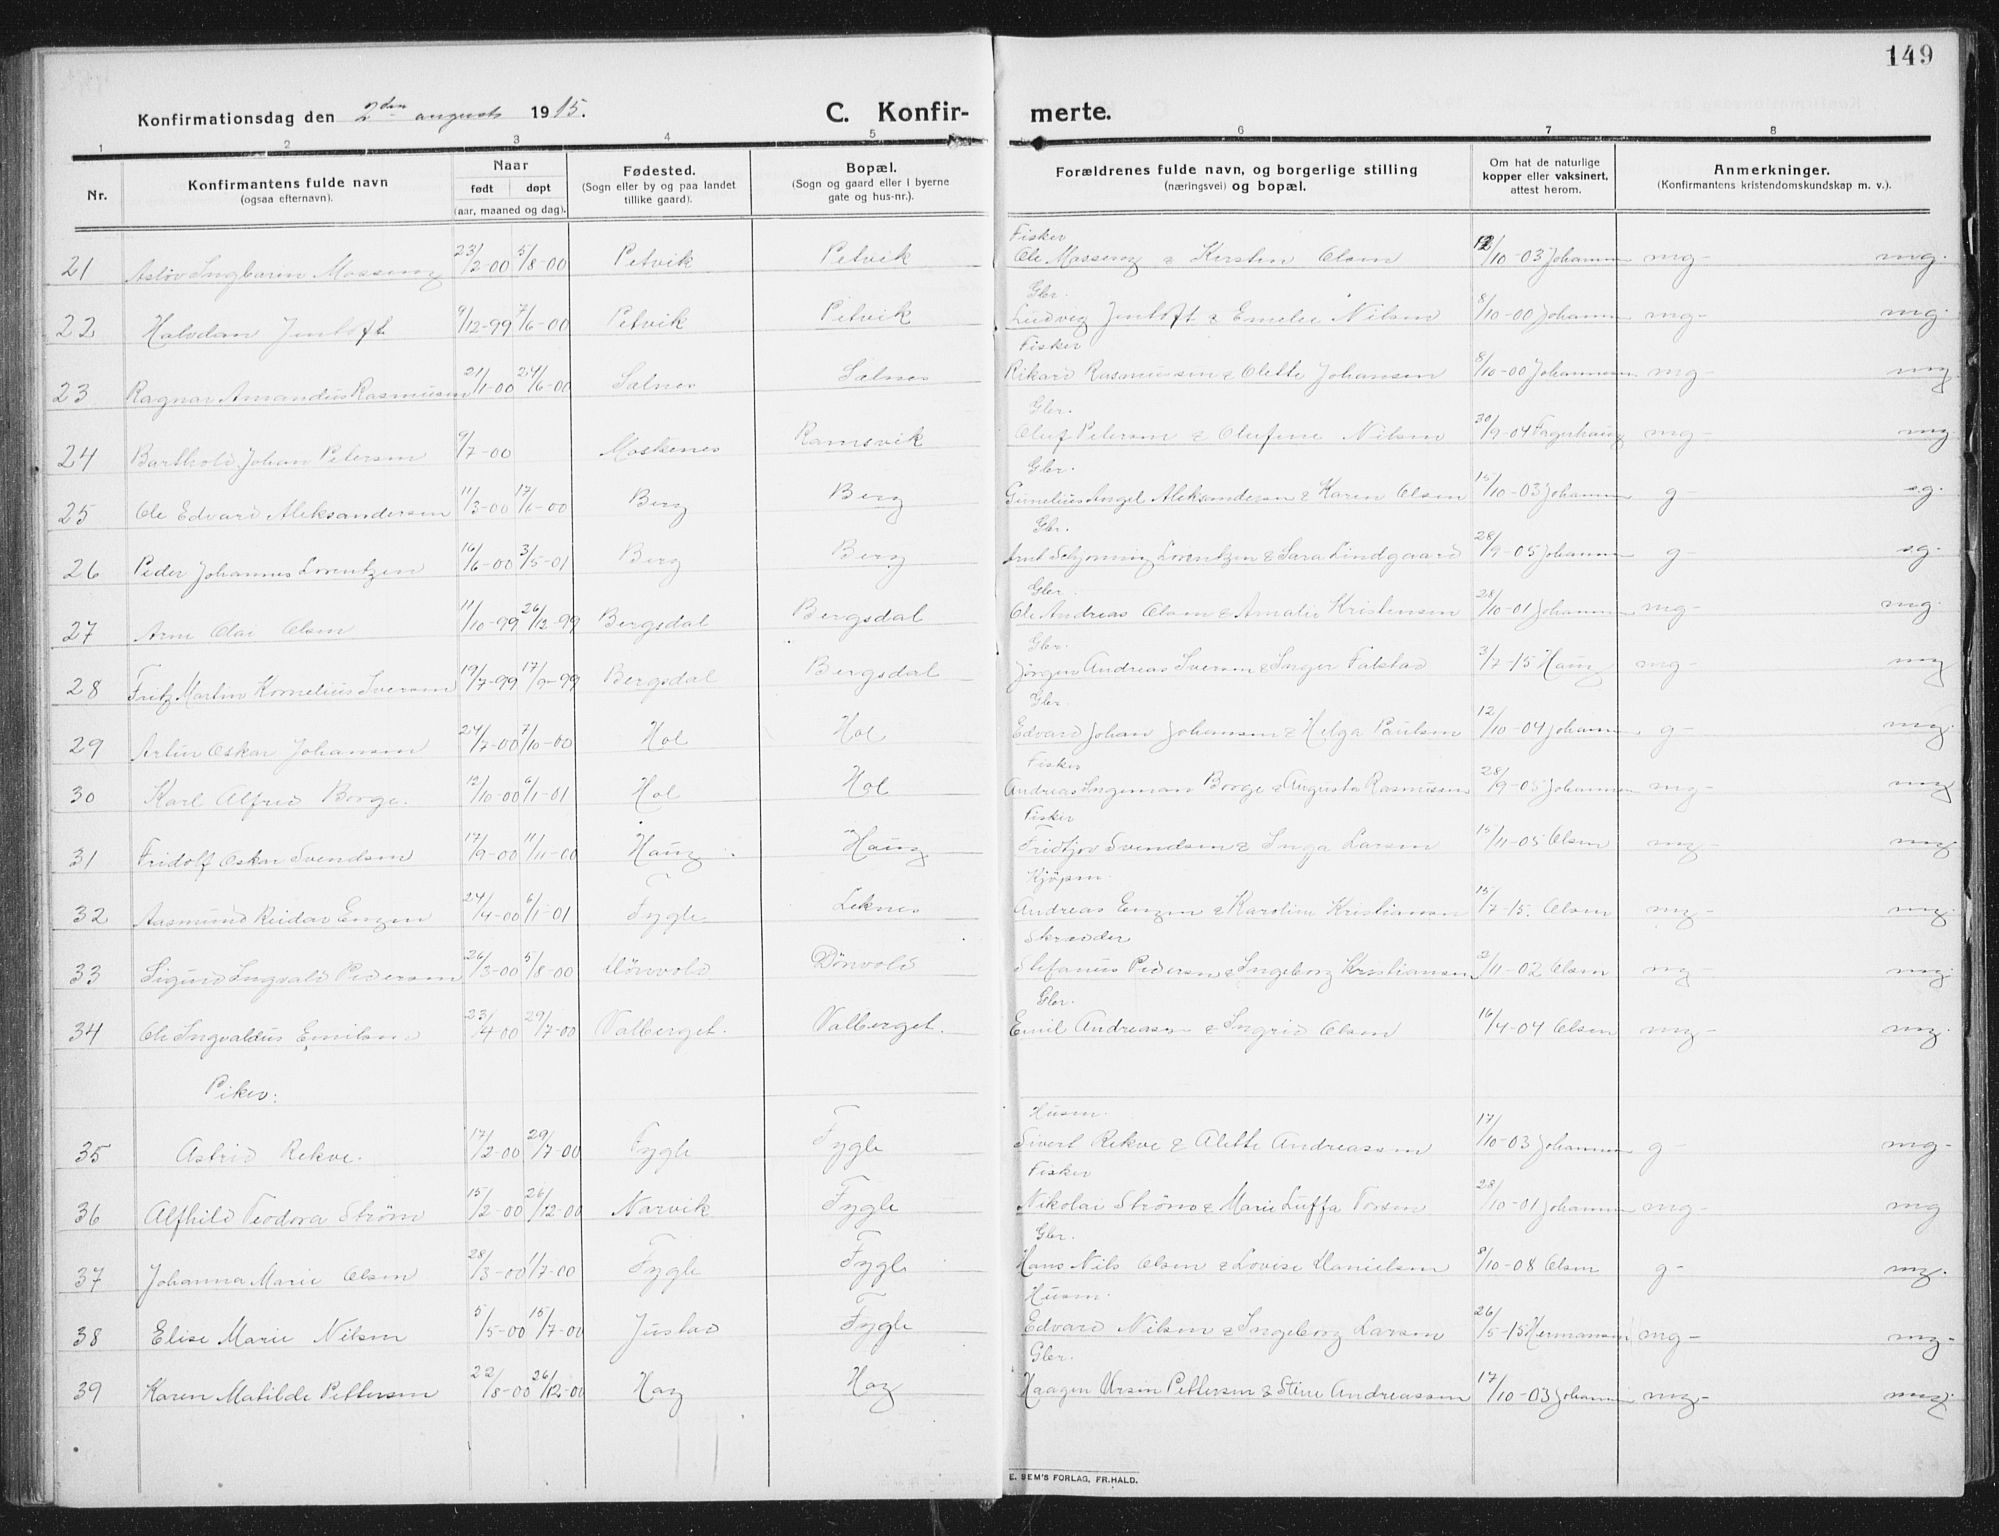 149
Konfirmationsdag den 2den august 1915.
C. Konfirmerte.
1 2 3 4 5 6 7 8
Nr.
Konfirmantens fulde navn
(ogsaa efternavn).
Naar
født døpt
(aar, maaned og dag).
Fødested.
(Sogn eller by og paa landet
tillike gaard).
Bopæl.
(Sogn og gaard eller i byerne
gate og hus-nr.).
Forældrenes fulde navn, og borgerlige stilling
(næringsvei) og bopæl.
Om hat de naturlige
kopper eller vaksinert,
attest herom.
Anmerkninger.
(Konfirmantens kristendomskundskap m. v.).
Fisker
21 Massenz 23/2-00 5/8-00 Petvik Petvik Ole Massenz & Kirsten Olsen /10-03 Johannsen mg- mg.
Gbr.
22 Halvdan Jentoft 9/12-99 7/6-00 Petvik Petvik Ludvig Jentoft & Emelie Nilsen 8/10-00 Johannsen mg- mg.
Fisker
23 Ragnar Amandus Rasmussen 21/1-00 24/6-00 Sælnes Sælnes Rikard Rasmussen & Olette Johansen 8/10-00 Johannsen mg- mg
Gbr.
24 Barthold Johan Petersen 9/7-00 Moskenes Ramsvik Oluf Petersen & Olufine Nilsen 30/9-04 Fagerhaug mg- mg
Gbr.
25 Ole Edvard Aleksandersen 11/3-00 17/6-00 Berg Berg Angel Aleksandersen & Karen Olsen 15/10-03 Johannsen g- sg.
Gbr.
26 Peder Johannes Lorentzen 16/6-00 3/5-01 Berg Berg Lorentzen & Sara Lindgaard 28/9-05 Johannsen g- sg.
Gbr.
27 Arne Olai Olsen 11/10-99 26/12-99 Bergsdal Bergsdal Ole Andreas Olsen & Amalie Kristensen 28/10-01 Johannsen mg- mg.
Gbr.
28 Fritz Martin Kornelius Iversen 19/7-99 17/9-99 Bergsdal Bergsdal Jørgen Andreas Iversen & Inger Falstad 3/7-15 Haug mg- mg
Gbr.
29 Oskar Johansen 24/7-00 7/10-00 Hol Hol Edvard Johan Johansen & Helga Paulsen 12/10-04 Johannsen g- mg.
Fisker
30 Karl Alfred Borge. 12/10-00 6/1-01 Hol Hol Andreas Ingeman Borge & Augusta Rasmussen 28/9-05 Johannsen mg- mg
Fisker
31 Fridolf Oskar Svendsen 17/9-00 11/11-00 Haug Haug Fridtjov Svendsen & Inga Larsen 15/11-05 Olsen mg- mg
Kjøpm.
32 Aasmund Reidar Enzen 24/4-00 6/1-01 Fygle Leknes Andreas Enzen & Karoline Kristiansen 15/7-15. Olsen mg- mg.
Skræder
33 Sigurd Ingvald Pedersen 26/3-00 5/8-00 Dönvold Dönvold Stefanus Pedersen & Ingeborg Kristiansen 2/11-02 Olsen mg- mg.
Gbr.
34 Ole Ingvaldus Emilsen 23/4-00 29/7-00 Valberget. Valberget. Emil Andreassen & Ingrid Olsen 16/4-04 Olsen mg- mg.
Piker:
Husm.
35 Astrid Rekve. 17/2-00 29/7-00 Fygle Fygle Sivert Rekve & Alette Andreassen 17/10-03 Johannsen g- mg-
Fisker
36 Alfhild Teodora Strøm 15/2-00 26/12-00 Narvik Fygle Nikolai Strøm & Marie Luffa Torsen 28/10-01 Johannsen mg- mg
Gbr.
37 Johanna Marie Olsen 28/3-00 1/7-00 Fygle Fygle Hans Nils Olsen & Lovise Danielsen 8/10-08 Olsen g- mg.
Husm.
38 Elise Marie Nilsen 5/5-00 15/7-00 Justad Fygle Edvard Nilsen & Ingeborg Larsen 26/5-15 Hermansen mg- mg-
Gbr.
39 Karen Matilde Pettersen 22/8-00 26/12-00 Hag Hag Haagen Ursin Pettersen & Stine Andreassen 17/10-03 Johannsen mg- mg.
E. SEM'S FORLAG, FR.HALD.